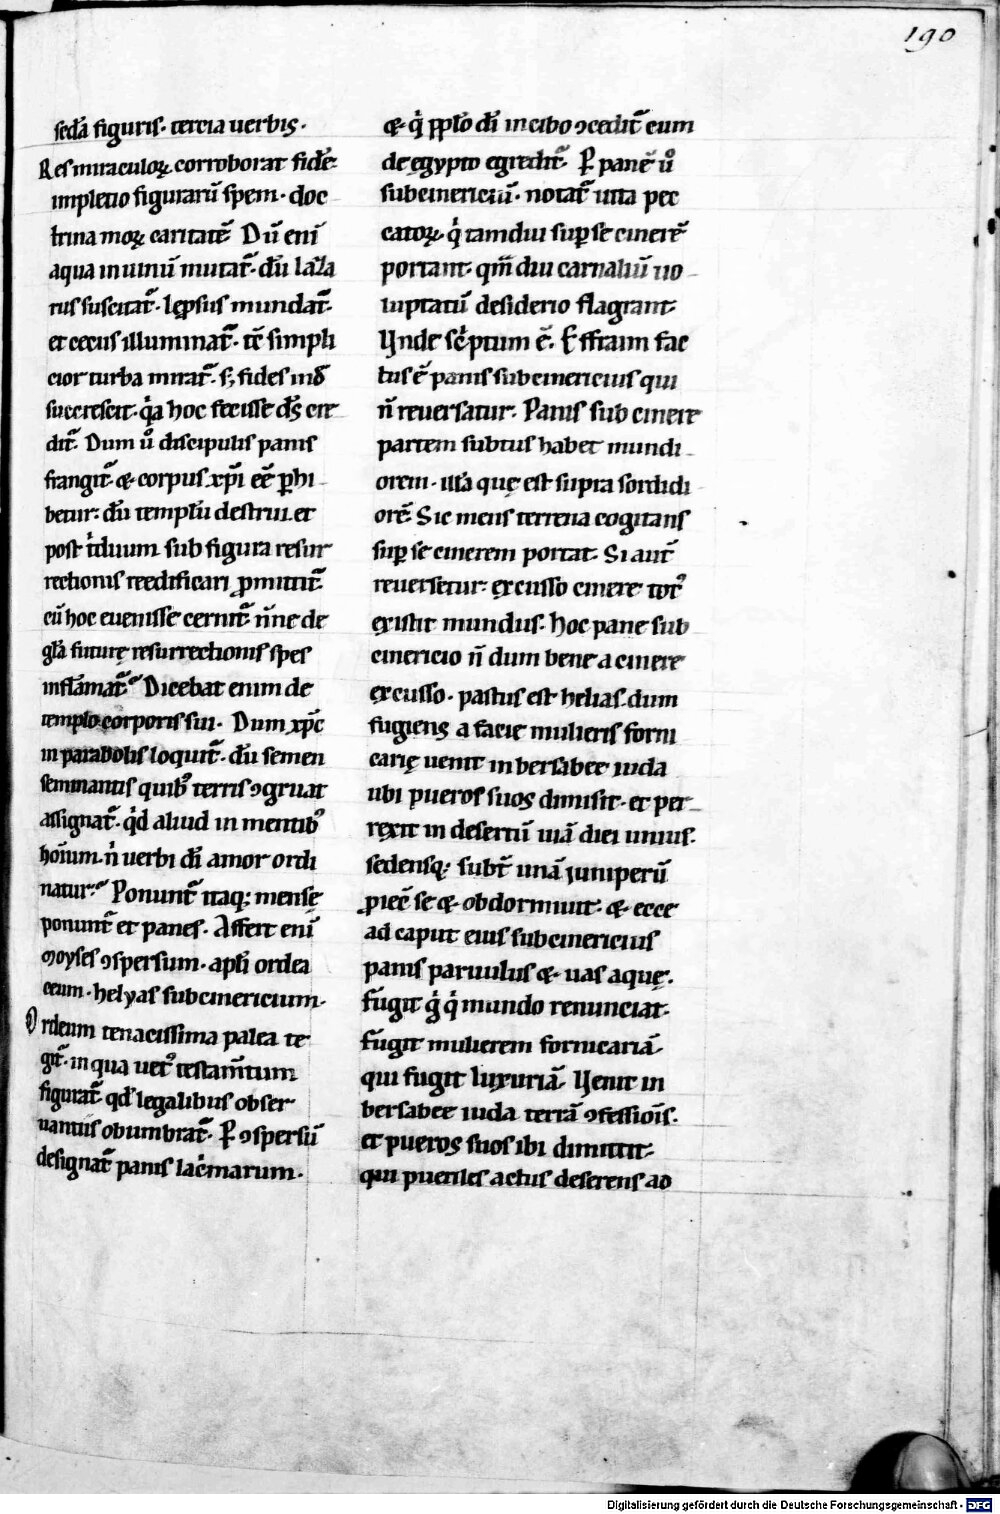 190
sedā figuris· tercia uerbis·
Res miraculoꝝ· corroborat fidē·
impletio figurarū spem· doc
trina moꝝ caritatē Dū eni
aqua in uinū mutat᷑· dū laza
rus suscitat᷑· lep̄sus mundat᷑·
et cecus illuminat᷑· tc̄ simpli
cior turba mirat᷑· s; fides in d̄
succrescit· qͥa hoc fecisse dn̄s cre
dit᷑· Dum u̾o discipulis panis
frangit᷑· & corpus xp̄i ee̅ ꝑhi
betur· dū templū destrui· et
post tͥduum sub figura resur
rectionis reedificari ꝓmittit᷑·
cū hoc euenisse cernit᷑· n̄ne de
gl̄a futurę resurrectionis spes
inflāmat᷑· Dicebat enim de
templo corporis sui· Dum xp̄c
in parabolis loquit᷑· dū semen
seminantis quibꝰ terris ꝯgruat
assignat᷑· qͥd aliud in mentibꝰ
hoīum· n̄ uerbi dī amor ordi
natur· Ponunt᷑ itaq; mensę
ponunt᷑ et panes· Affert eni
moyses ꝯspersum· apl̄i ordea
ceum· helyas subcinericium·
Ordeum tenacissima palea te
git᷑· in qua uetꝰ testam̄tum
figurat᷑ qd̄ legalibus obser
uantiis obumbrat᷑· P̲ ꝯspersū
designat᷑ panis lacͥmarum·
& qͥ ppl̄o dī in cibo ꝯcedit᷑ cum
de egypto egredit᷑· P̲ panē u̾o
subcinericiū· notat᷑ uita pec
catoꝝ· qͥ tamdiu suꝑ se cinerē
portant· qm̄ diu carnaliū uo
luptatū desiderio flagrant·
Vnde scͥptum ē· Effraim fac
tus ē panis subcinericius qui
n̄ reuersatur· Panis sub cinere
partem subtus habet mundi
orem· illa quę est supra sordidi
orē· Sic mens terrena cogitans
suꝑ se cinerem portat· Si aut̄
reuersetur· excusso cinere totꝰ
existit mundus· hoc pane sub
cinericio n̄ dum bene a cinere
excusso· pastus est helias· dum
fugiens a facie mulieris forni
carię uenit in bersabee iuda
ubi pueros suos dimisit· et per
rexit in desertū uiā diei unius·
sedensq; subt᷑ unā iuniperū
ꝓiec̄ se & obdormiuit· & ecce
ad caput eius subcinericius
panis paruulus & uas aquę·
fugit g̊ qͥ mundo renunciat·
fugit mulierem fornicariā·
qui fugit luxuriā· Venit in
bersabee iuda terrā ꝯfessiois·
et pueros suos ibi dimittit·
qui pueriles actus deserens ad
Digitalisierung gefördert durch die Deutsche Forschungsgemeinschaft - DFG